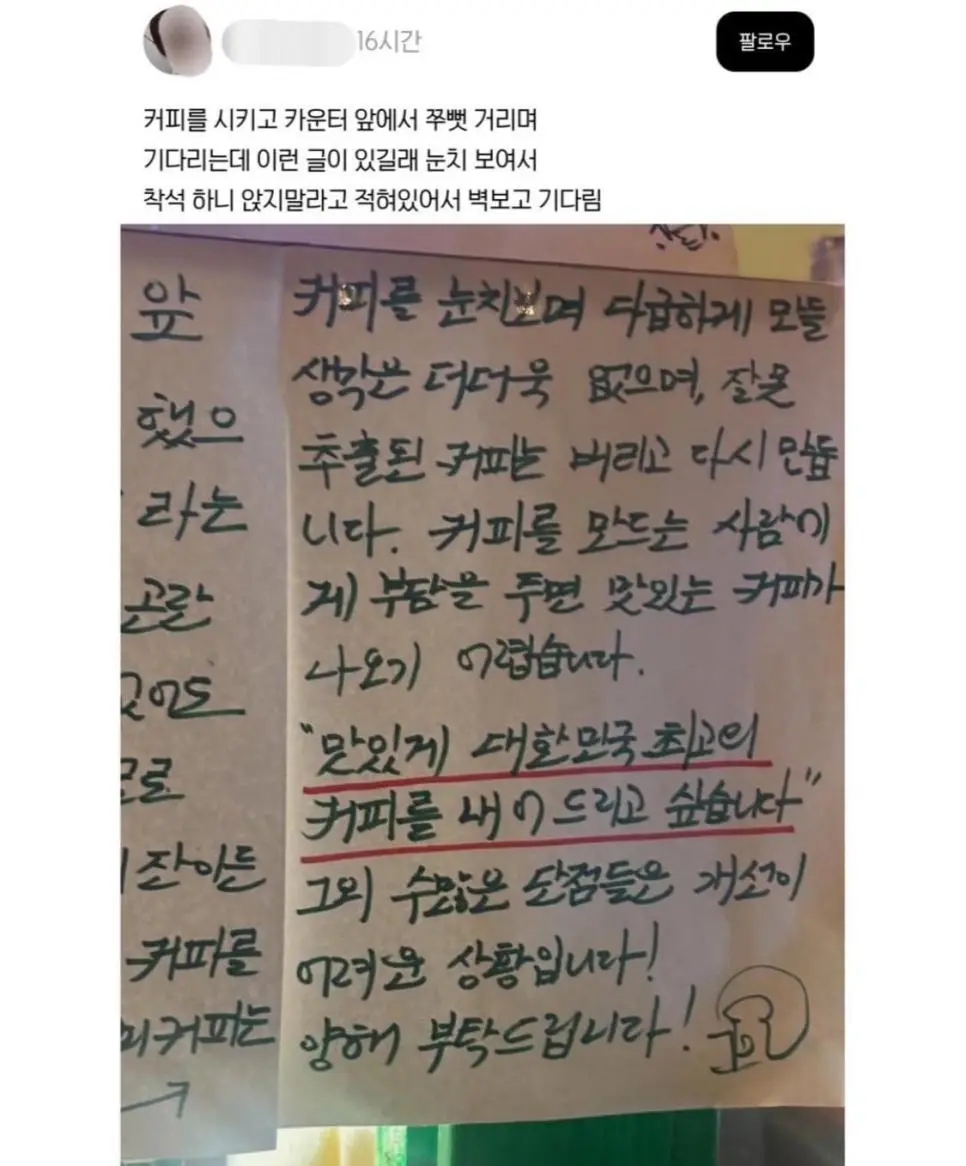 16시간
팔로우
커피를 시키고 카운터 앞에서 쭈뼛 거리며
기다리는데 이런 글이 있길래 눈치 보여서
착석 하니 앉지말라고 적혀있어서 벽보고 기다림
앞
했으
라는
곤란
모로
잔이든
커피를
커피는
커피를 눈치보며 다급하게 만들
생각은 더더욱 없으며, 잘못
추출된 커피는 버리고 다시 만듭
니다. 커피를 만드는 사람에
게 부담을 주면 맛있는 커피가
나오기 어렵습니다.
"맛있게 대한민국 최고의
커피를 내어드리고 싶습니다"
그외 수많은 단점들은 개선이
어려운 상황입니다!
양해 부탁드립니다!